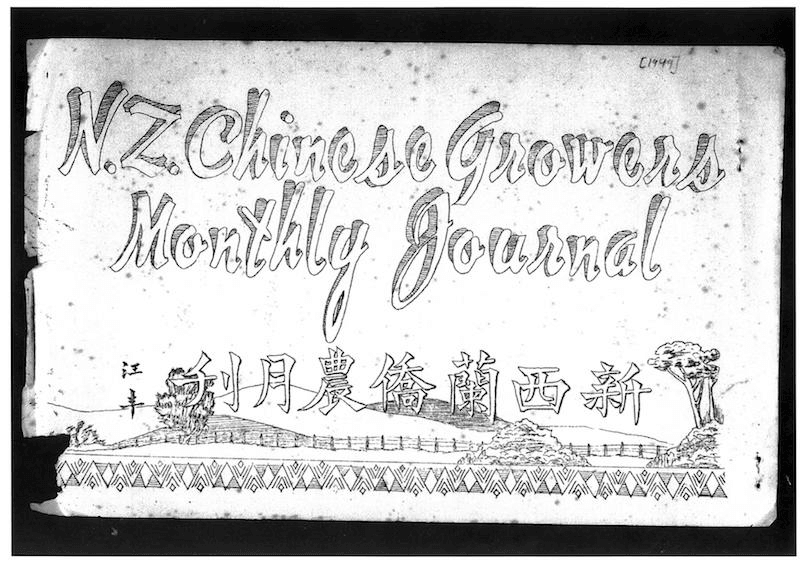 [1949]
N.Z. Chinese Growers
Monthly Journal
新西蘭僑農月刊